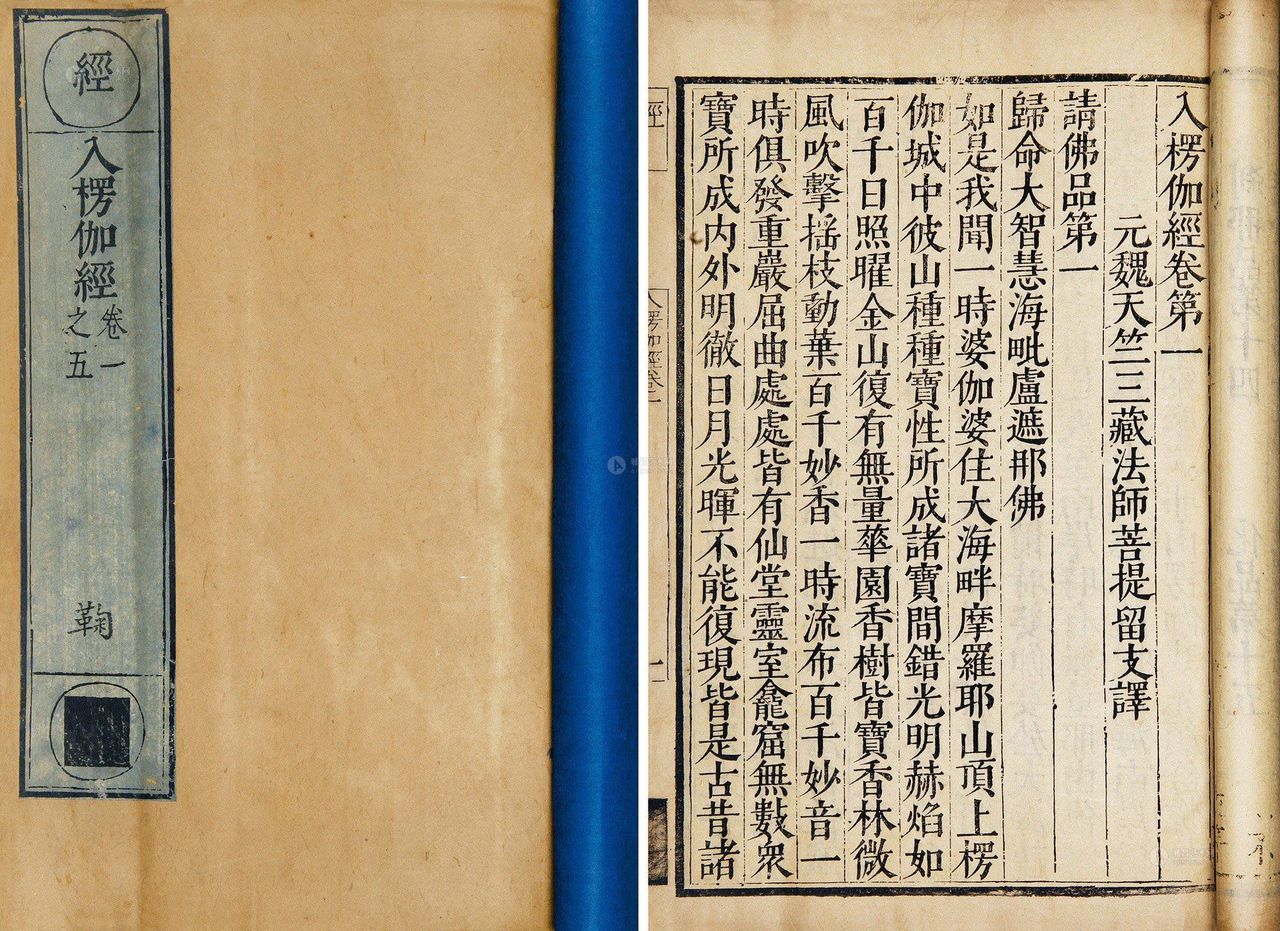 經
入楞伽經
卷一
之五
鞠
入楞伽經卷第一
元魏天竺三藏法師菩提留支譯
請佛品第一
歸命大智慧海毗盧遮那佛
如是我聞一時婆伽婆住大海畔摩羅耶山頂上楞
伽城中彼山種種寶性所成諸寶間錯光明赫焰如
百千日照曜金山復有無量華園香樹皆寶香林微
風吹擊搖枝動葉百千妙香一時流布百千妙音一
時俱發重巖屈曲處處皆有仙堂靈室龕窟無數衆
寶所成内外明徹日月光暉不能復現皆是古昔諸
經
入楞伽經卷一
一